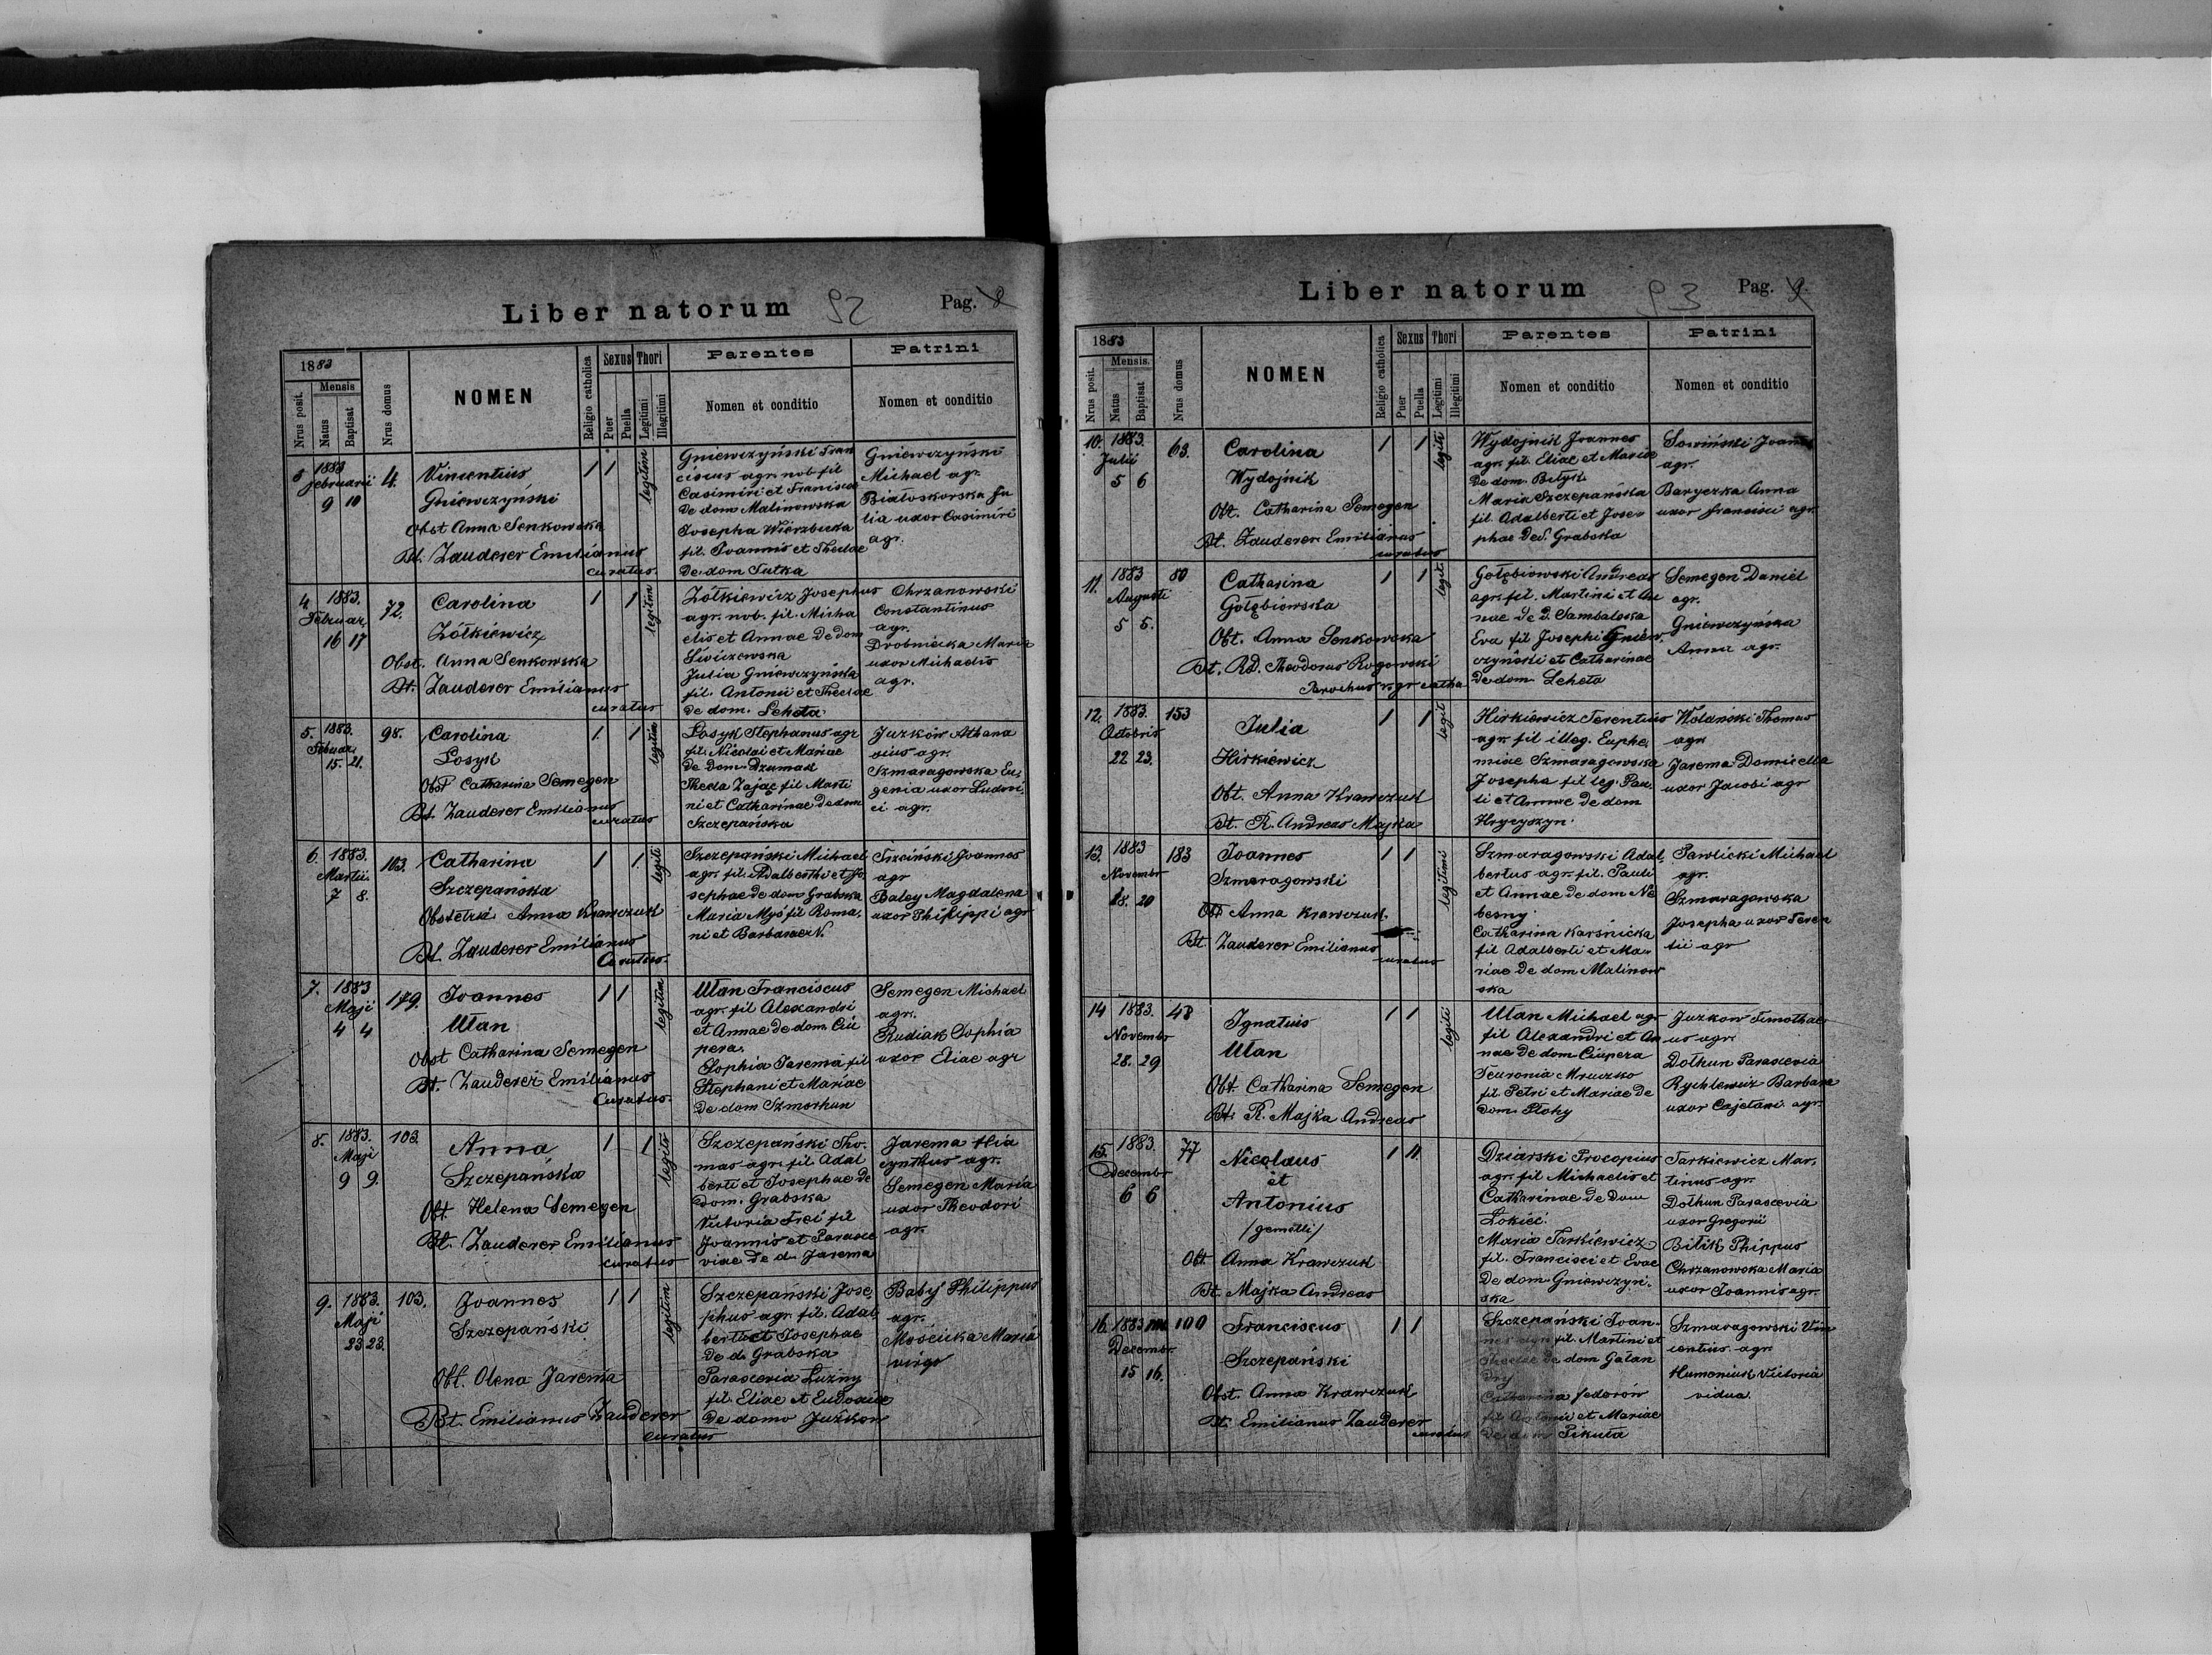 Liber natorum 92 Pag. 8
1883
Nrus posit.
Mensis
Natus
Baptisat
Nrus domus
NOMEN
Religio catholica
Sexus
Puer
Puella
Thori
Legitimi
Illegitimi
Parentes
Nomen et conditio
Patrini
Nomen et conditio
3 1883 Februarii 9 10
4.
Vincentius
Gniewczyński
Obst Anna Senkowska
Bt. Zauderer Emilianus
curatus.
1 1
legitim
Gniewczyński Fran
ciscus agr. nob. fil
Casimiri et Francisca
de dom Malinowska
Josepha Wierzbicka
fil. Joannis et Theclae
de dom Sutka
Gniewczyński
Michael agr.
Białoskorska Ju
lia uxor Casimiri
agr.
4. 1883. Februar. 16 17
72.
Carolina
Żółkiewicz
Obst. Anna Senkowska
Bt. Zauderer Emilianus
curatus
1 1
legitim
Żółkiewicz Josephus
agr. nob. fil. Micha
elis et Annae de dom
Świczewska
Julia Gniewczyńska
fil. Antonii et Theclae
de dom. Scheta
Chrzanowski
Constantinus
agr.
Drobnicka Maria
uxor Michaelis
agr.
5. 1883. Februar. 15. 21.
98.
Carolina
Łosyk
Obst Catharina Semegen
Bt. Zauderer Emilianus
curatus
1. 1
legitim
Łosyk Stephanus agr
fil. Nicolai et Mariae
de dom. Dzumak
Thecla Zając fil. Marti
ni et Catharinae de dom
Szczepańska
Juzków Athana
sius agr.
Szmaragowska Eu,
genia uxor Ludovi,
ci agr.
6. 1883. Martii 7 8.
103.
Catharina
Szczepańska
Obstetrix Anna Krawczuk
Bt. Zauderer Emilianus
Curatus.
1 1.
legiti
Szczepański Michael
agr. fil. Adalberthi et Jo
sephae de dom Grabska
Maria Myś fil Roma,
ni et Barbarae N.
Trzciński Joannes
agr
Baley Magdalena
uxor Philippi agr
7. 1883 Maji 4 4
179.
Joannes
Ułan
Obst Catharina Semegen
Bt. Zauderer Emilianus
Curatus.
1 1
legitim
Ułan Franciscus
agr. fil Alexandri
et Annae de dom Ciu
pera.
Sophia Jarema fil
Stephani et Mariae
de dom Szmorhun
Semegen Michael
agr.
Rudiak Sophia
uxor Eliae agr
8. 1883. Maji 9 9.
103.
Anna
Szczepańska
Obt. Helena Semegen
Bt. Zauderer Emilianus
curatus
1 1
legiti
Szczepański Tho-
mas agr. fil. Adal
berti et Josephae de
dom. Grabska
Victoria Trei fil
Joannis et Parasce
viae de d. Jarema
Jarema Hia
cynthus agr.
Semegen Maria
uxor Theodori
agr.
9. 1883. Maji 23 23.
103.
Joannes
Szczepański
Obt. Olena Jarema
Bt. Emilianus Zauderer
curatus
1 1
legitim
Szczepański Jose,
phus agr. fil. Adal,
berti et Josephae
de d. Grabska
Parascevia Luzny
fil. Eliae et Eudoxiae
de domo Juzkow
Babij Philippus
agr.
Mościcka Maria
virgo
Liber natorum 93 Pag. 9.
1883
Nrus posit.
Mensis.
Natus
Baptisat
Nrus domus
NOMEN
Religio catholica
Sexus
Puer
Puella
Thori
Legitimi
Illegitimi
Parentes
Nomen et conditio
Patrini
Nomen et conditio
10. 1883. Julii 5 6
63.
Carolina
Wydojnik
Obt. Catharina Semegen
Bt. Zauderer Emilianus
curatus
1 1
legiti
Wydojnik Joannes
agr. fil. Eliae et Mariae
de dom. Bilyk
Maria Szczepańska
fil. Adalberti et Jose,
phae de d. Grabska
Sowiński Joannes
agr.
Baryczka Anna
uxor Francisci agr.
11. 1883 Augusti 5 5.
80
Catharina
Gołębiowska
Obt. Anna Senkowska
Bt. Rd. Theodorus Rogowski
Parochus r. gr catha
1 1
legiti
Gołębiowski Andreas
agr. fil. Martini et An
nae de d. Sambalska
Eva fil Josephi Gniew,
czyński et Catharinae
de dom. Scheta
Semegen Daniel
agr.
Gniewczyńska
Anna agr.
12. 1883. Octobris 22 23.
153
Julia
Hirkiewicz
Obt. Anna Krawczuk
Bt. R. Andreas Majka
1 1
legit
Hirkiewicz Terentius
agr. fil illeg. Euphe,
miae Szmaragowska
Josepha fil leg. Pau,
li et Annae de dom
Hrycyszyn.
Wolański Thomas
agr
Jarema Domicella
uxor Jacobi agr
13. 1883 Novembr 18. 20
183
Joannes
Szmaragowski
Obt Anna Krawczuk
Bt. Zauderer Emilianus
curatus
1 1
legitimi
Szmaragowski Adal,
bertus agr. fil. Pauli
et Annae de dom Ne
besny.
Catharina Karśnicka
fil Adalberti et Ma-
riae de dom Malinow
ska
Pawlicki Michael
agr.
Szmaragowska
Josepha uxor Teren
tii agr
14 1883. Novembr 28. 29
48
Ignatius
Ułan
Obt. Catharina Semegen
Bt. R. Majka Andreas
1 1
legiti
Ułan Michael agr
fil Alexandri et An
nae de dom Ciupera
Fevronia Mruczko
fil. Petri et Mariae de
dom. Płohy
Juzkow Timothae
us agr.
Dothun Parascevia
Rychlewicz Barbara
uxor Cajetani agr.
15. 1883. Decembr 6 6
77
Nicolaus
et
Antonius
/gemelli/
Obt Anna Krawczuk
Bt. Majka Andreas
1 11
Dziarski Procopius
agr. fil Michaelis et
Catharinae de dom
Łokieć.
Maria Tarkiewicz
fil. Francisci et Evae
de dom Gniewczyń,
ska
Tarkiewicz Mar,
tinus agr.
Dothun Parascevia
uxor Gregorii
Bilik Phippus
Chrzanowska Maria
uxor Joannis agr.
16. 1883 Decembr. 15 16.
100
Franciscus
Szczepański
Obst. Anna Krawczuk
Bt. Emilianus Zauderer
curatus
1 1
Szczepański Joan-
nes agr. fil. Martini et
Theclae de dom Gałan
dry
Catharina Fedorów
fil Antonii et Mariae
de dom Pikuła
Szmaragowski Vin
centius agr.
Humeniuk Victoria
vidua.